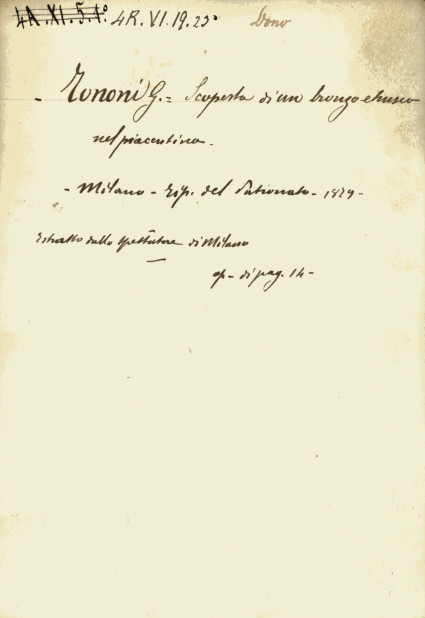 4A.XI.5.1° 4R.VI.19.23° Dono
- Tononi G. = Scoperta di un bronzo etrusco
nel piacentino -
- Milano - Tip. del Patronato - 1879 -
Estratto dallo Spettatore di Milano
op - di pag. 14 -